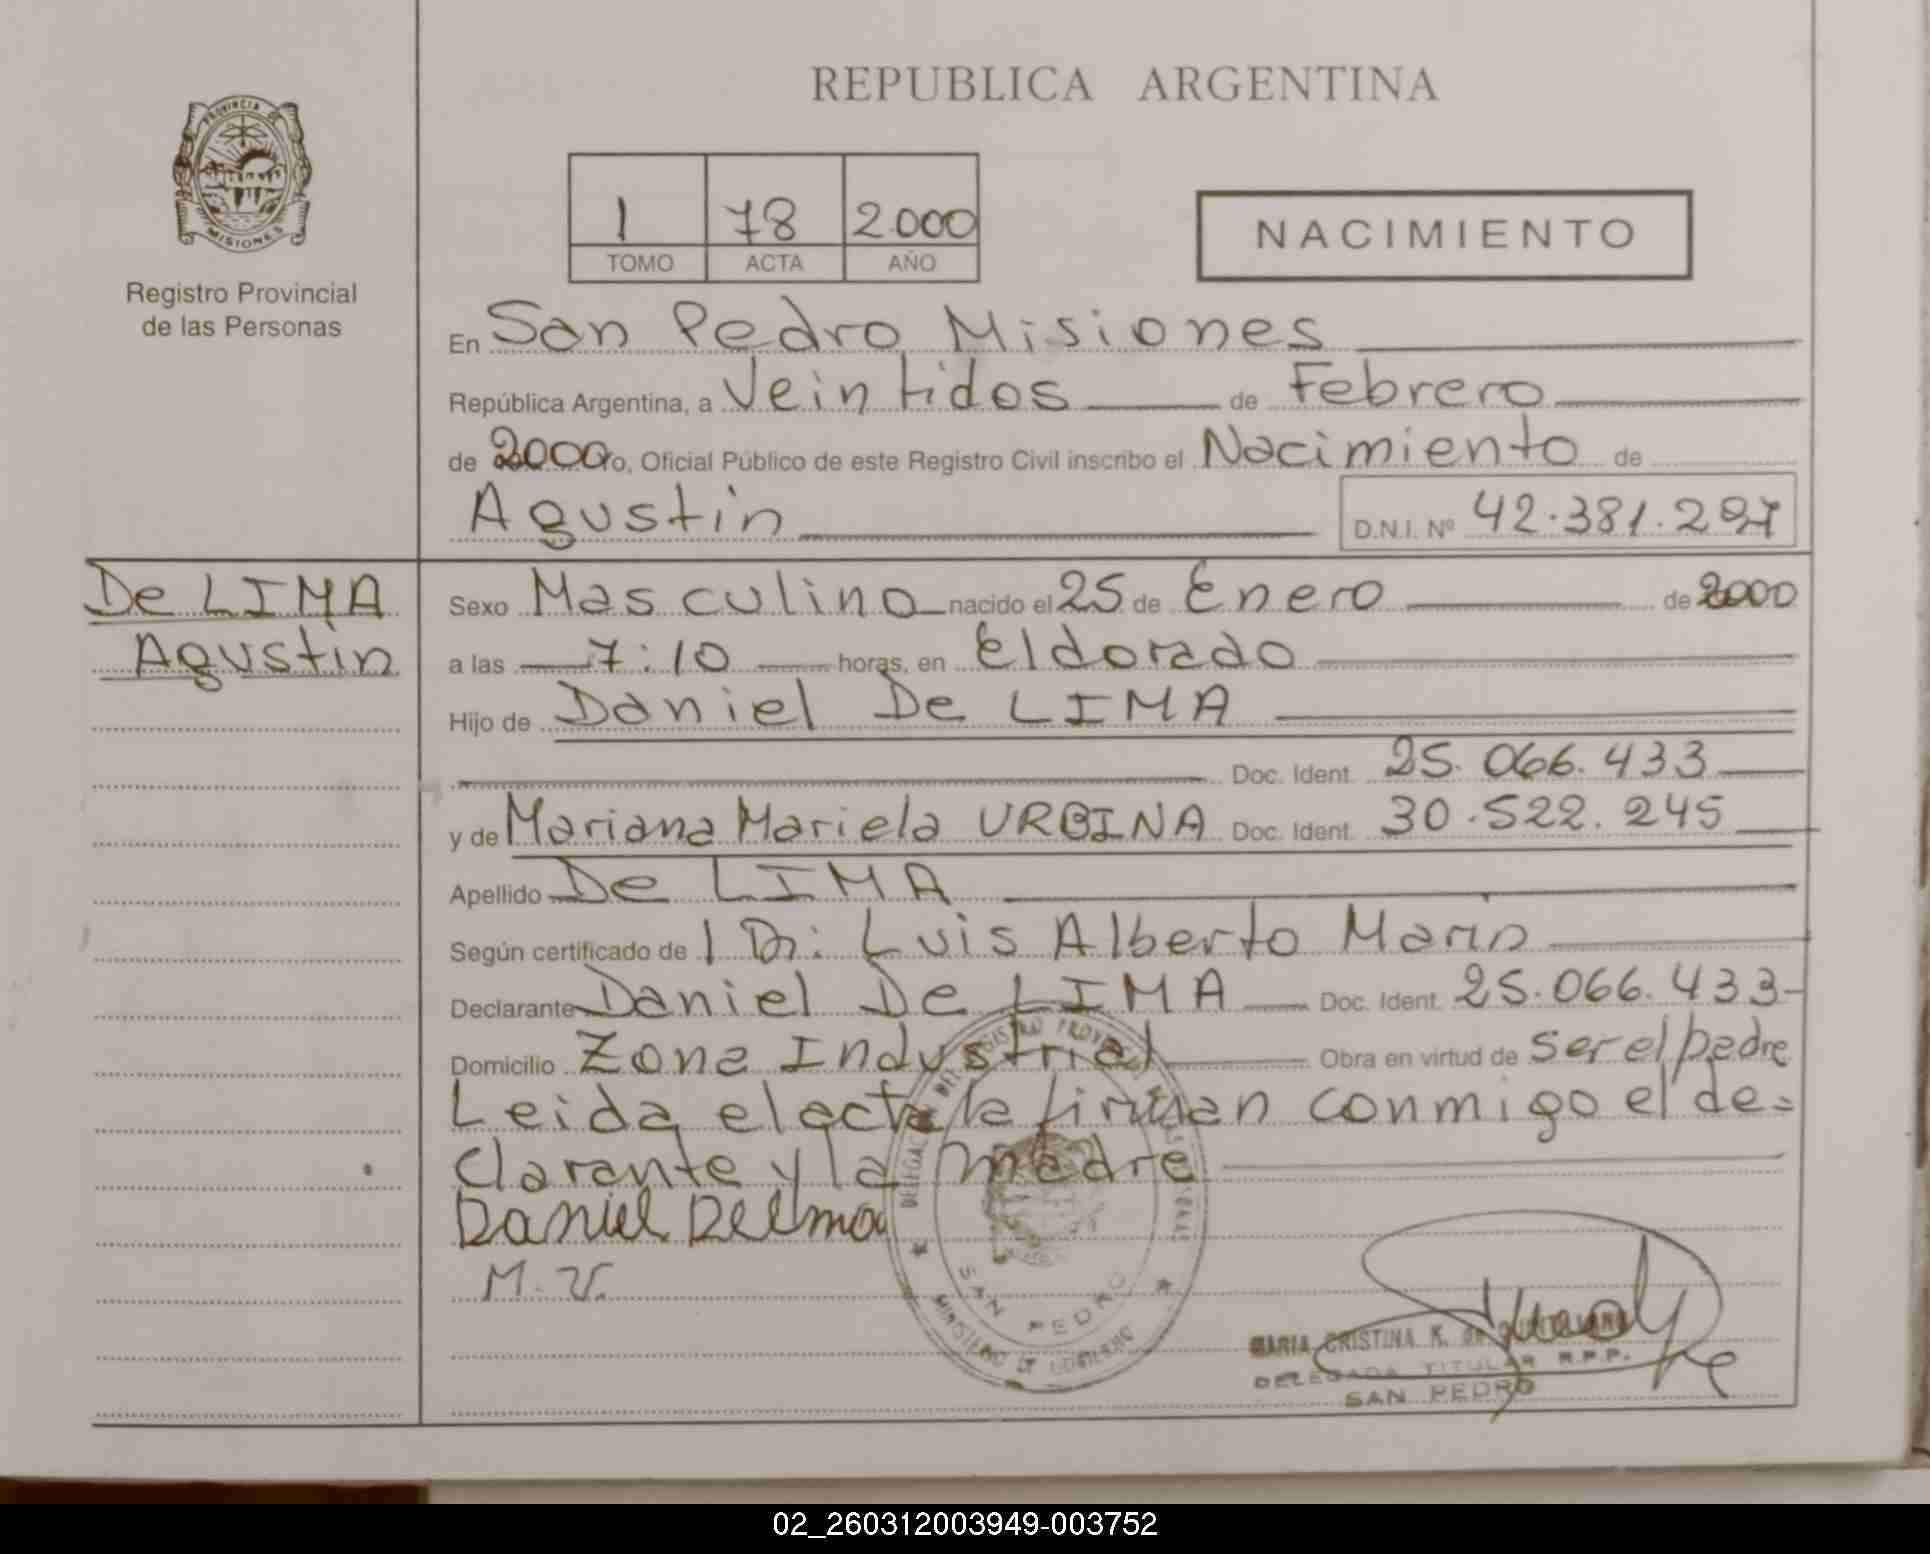 REPUBLICA ARGENTINA
PROVINCIA DE
MISIONES
Registro Provincial
de las Personas
1 78 2.000
TOMO ACTA AÑO
NACIMIENTO
En San Pedro Misiones
República Argentina, a Veintidos de Febrero
de 2000 yo, Oficial Público de este Registro Civil inscribo el Nacimiento de
Agustin D.N.I. Nº 42.381.297
De LIMA
Agustin
Sexo Masculino nacido el 25 de Enero de 2000
a las 7:10 horas, en Eldorado
Hijo de Daniel De LIMA
Doc. Ident. 25.066.433
y de Mariana Mariela URBINA Doc. Ident. 30.522.245
Apellido De LIMA
Según certificado de 1 Dr: Luis Alberto Marin
Declarante Daniel De LIMA Doc. Ident. 25.066.433
Domicilio Zona Industrial Obra en virtud de ser el padre
Leida el acta la firman conmigo el de=
clarante y la madre
Daniel Delima
M.V.
SAN PEDRO
MINISTERIO DE GOBIERNO
MARIA CRISTINA K. DE
DELEGADA TITULAR R.P.P.
SAN PEDRO
02_260312003949-003752